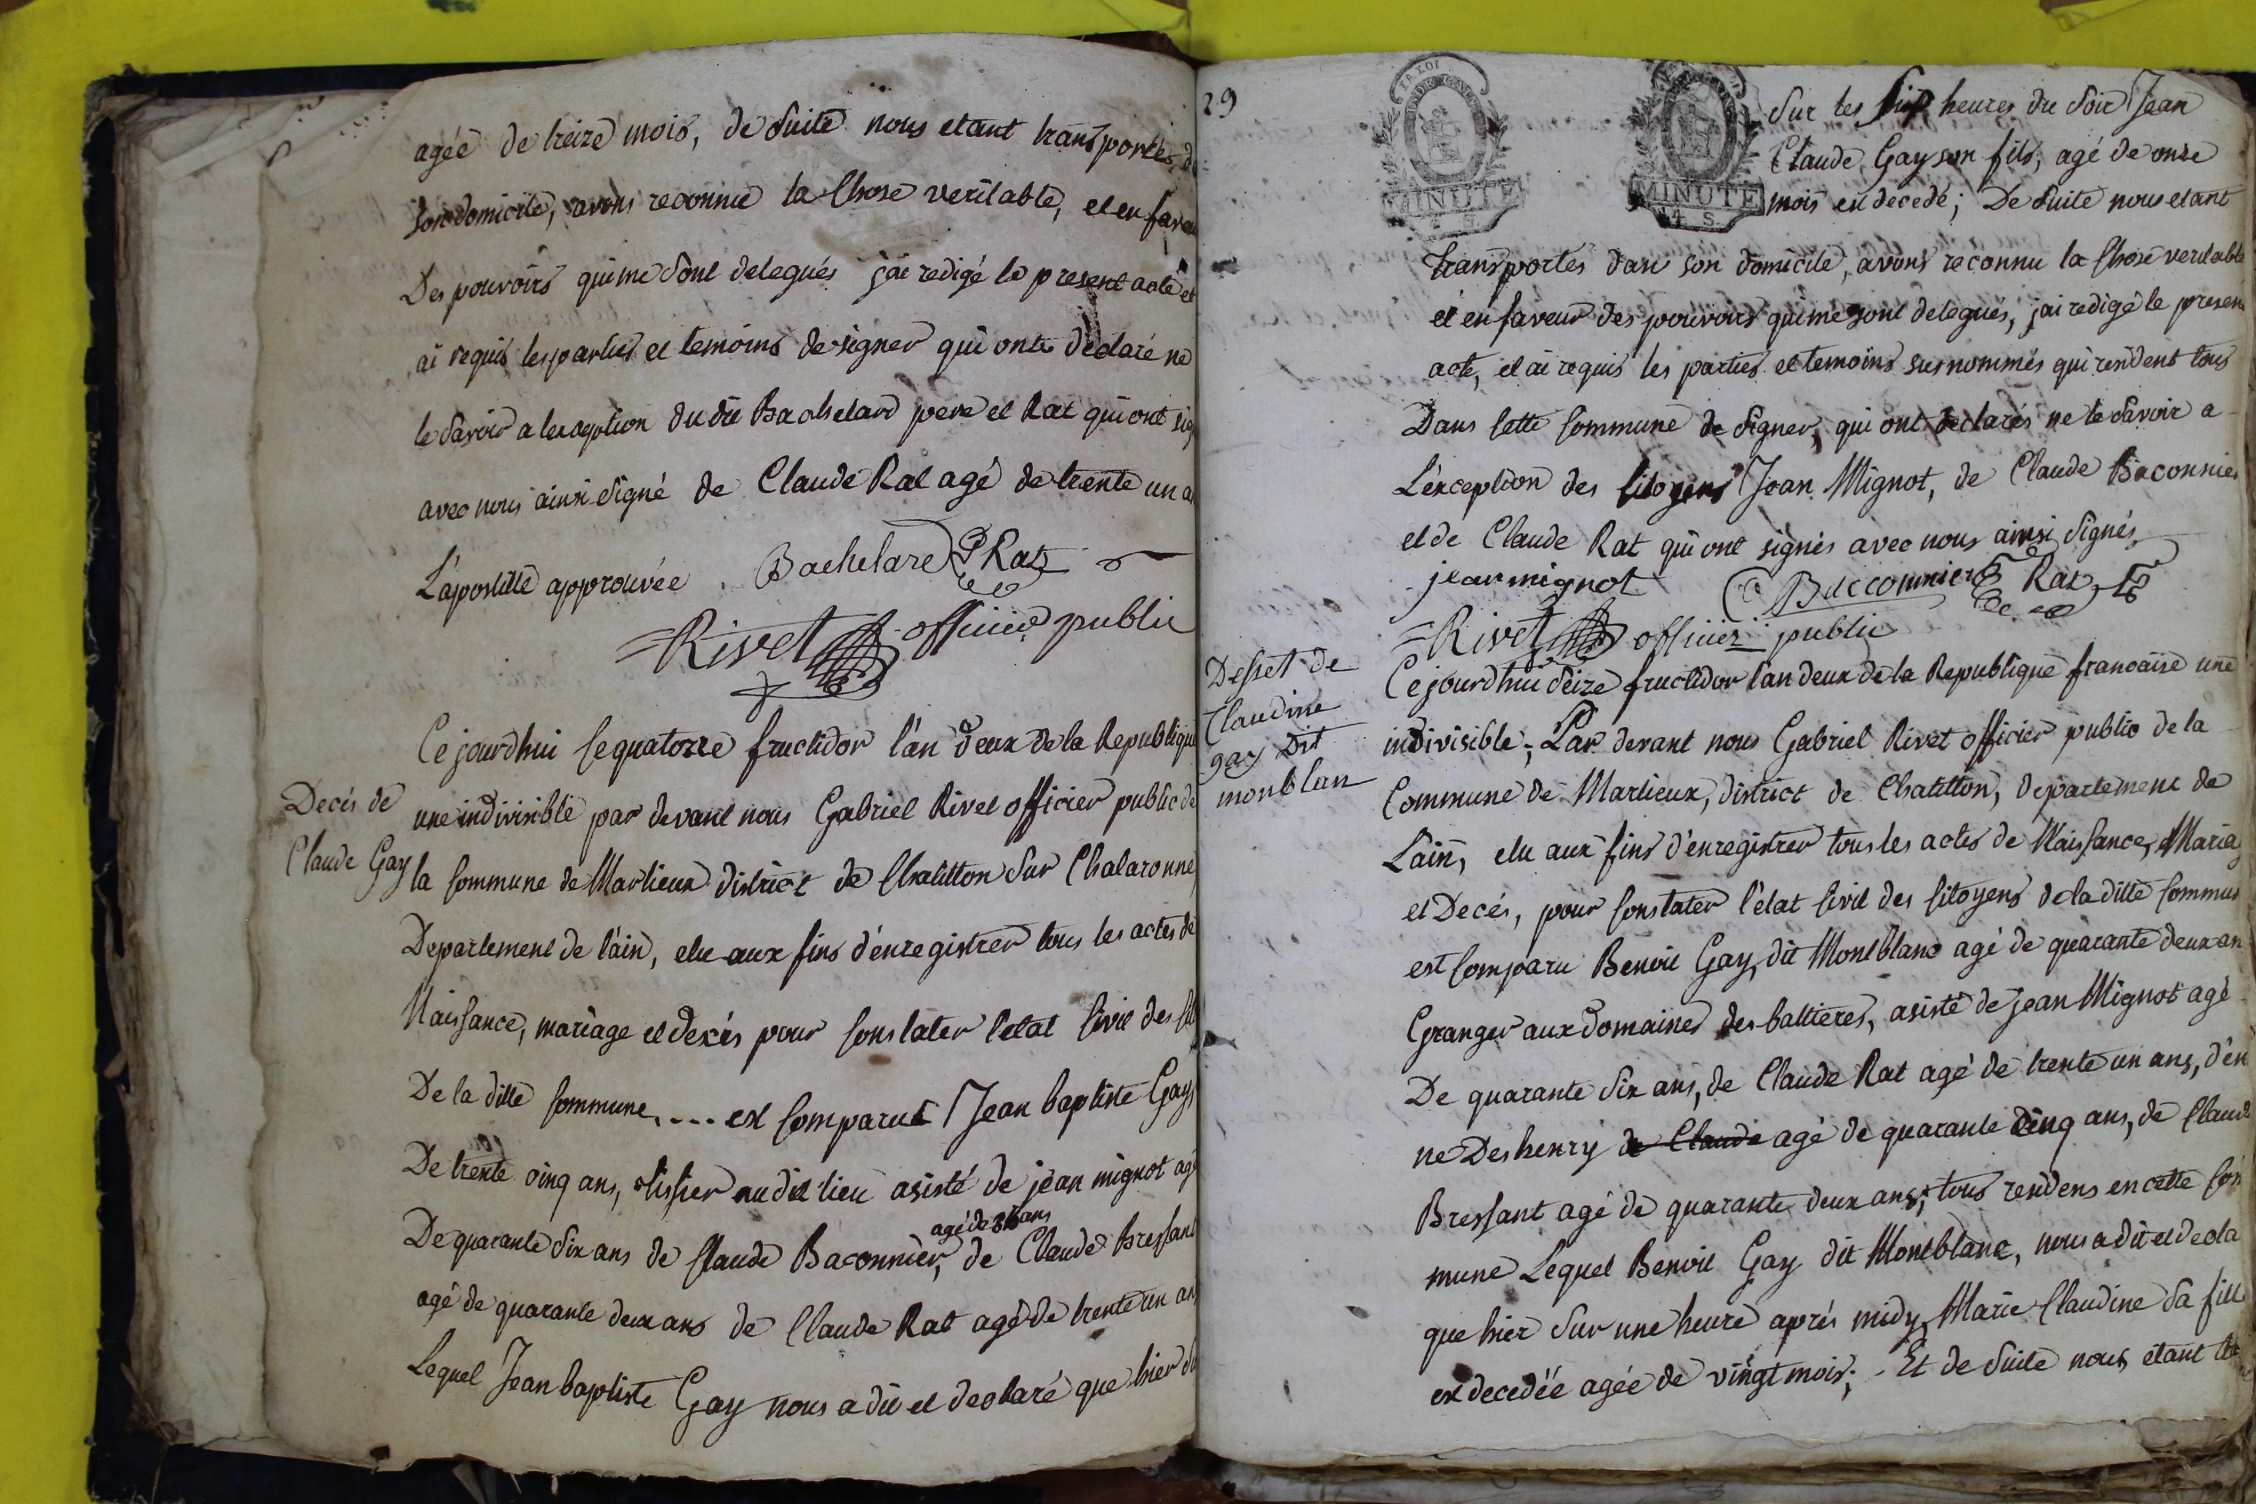 agée de treize mois, de suite nous etant transportés d
son domicile, avons reconnue la Chose veritable, et en fave
Des pouvoirs qui me sont delegués j'ai redigé le present acte et
ai requis les parties et temoins de signer qui ont déclaré ne
le savoir a lexception du dit Bachelard pere et Rat qui ont sig
avec nous ainsi signé de Claude Rat agé de trente un a
L'apostille approuvée Bachelard C Rat
Rivet officier public
Ce jourdhui le quatorze fructidor l'an deux de la Republique
Decés de
Claude Gay
une indivisible par devant nous Gabriel Rivet officier public de
la Commune de Marlieux district de Chatillon sur Chalaronne,
Departement de l'ain, elu aux fins d'enregistrer tous les actes de
Naissance, mariage et decés pour Constater l'etat Civil des Cit
De la ditte Commune, ... est Comparut Jean baptiste Gay
De trente cinq ans, tissier au dit lieu asisté de jean mignot agé
agé de 36 ans
De quarante six ans de Claude Baconnier, de Claude Bressant
agé de quarante deux ans de Claude Rat agé de trente un an
Lequel Jean baptiste Gay nous a dit et declaré que hier su
29
LA LOI
MINUTE
4 S
MINUTE
4 S.
Sur les six heures du soir Jean
Claude Gay son fils, agé de onze
mois est decedé; De suite nous etant
transportés dans son domicile, avons reconnu la Chose veritable
et en faveur des pouvoirs qui me sont delegués, j'ai redigé le presen
acte, et ai requis les parties et temoins susnommés qui resident tous
Dans Cette Commune de signer, qui ont declarés ne le savoir a
L'exception des Citoyens Jean Mignot, de Claude Baconnier
et de Claude Rat qui ont signés avec nous ainsi signés
jean mignot C Bacconnier C Rat
Rivet officier public
Desset de
Claudine
gay dit
monblan
Ce jourdhui seize fructidor l'an deux de la Republique francaise une
indivisible; Par devant nous Gabriel Rivet officier public de la
Commune de Marlieux, district de Chatillon, departement de
L'ain, elu aux fins d'enregistrer tous les actes de Naissance, Mariag
et Decés, pour Constater l'état Civil des Citoyens de la ditte Commun
est Comparu Benoit Gay, dit Montblanc agé de quarante deux an
Granger aux domaines des battieres, asisté de Jean Mignot agé
De quarante six ans, de Claude Rat agé de trente un ans, d'én
ne Deshenry de Claude agé de quarante cinq ans, de Claude
Bressant agé de quarante deux ans; tous residens en cette Com
mune Lequel Benoit Gay dit Montblanc, nous a dit et decla
que hier sur une heure aprés midy, Marie Claudine sa fille
est decedéé agée de vingt mois; - Et de suite nous étant